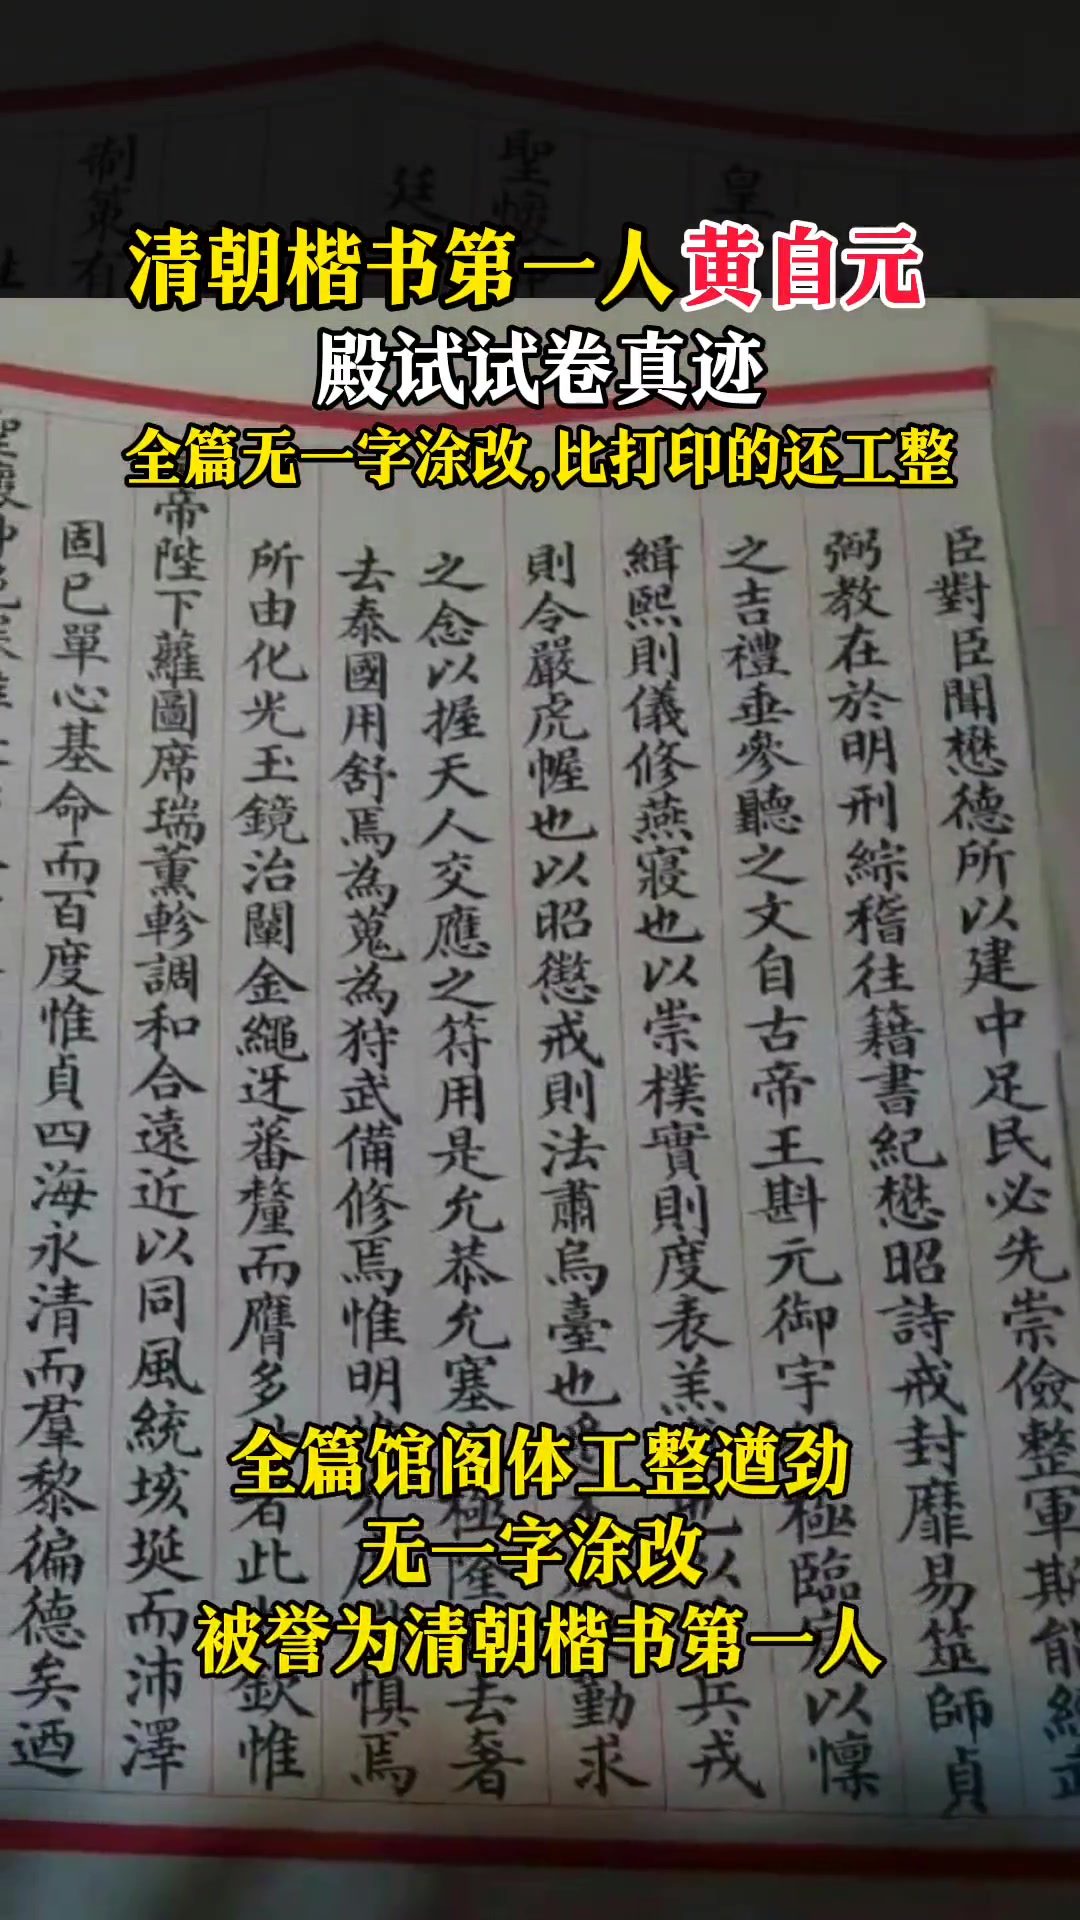 清朝楷书第一人黄自元
殿试试卷真迹
全篇无一字涂改,比打印的还工整
臣對臣聞懋德所以建中足民必先崇儉整軍斯能經武
弼教在於明刑綜稽往籍書紀懋昭詩戒封靡易筮師貞
之吉禮垂參聽之文自古帝王斟元御宇極臨以懍
緝熙則儀修燕寢也以崇樸實則度表羔也以兵戎
則令嚴虎幄也以昭懲戒則法肅烏臺也勤求
之念以握天人交應之符用是允恭允塞極隆去奢
去泰國用舒焉為蒐為狩武備修焉惟明惧焉
所由化光玉鏡治闡金繩迓蕃釐而膺多者此欽惟
帝陛下蘿圖席瑞薰軫調和合遠近以同風統垓埏而沛澤
固已單心基命而百度惟貞四海永清而羣黎徧德矣迺
全篇馆阁体工整遒劲
无一字涂改
被誉为清朝楷书第一人